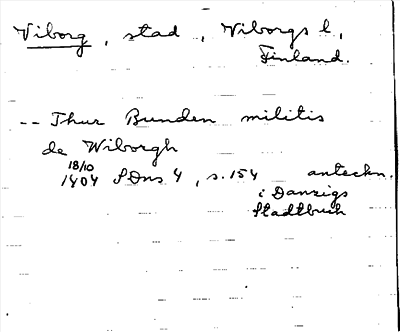 Viborg, stad, Viborgs l.,
Finland.
-- Thur Bunden militis
de Wiborgh
18/10
1404 SDns 4, s. 154 anteckn.
i Danzigs
Stadtbuch